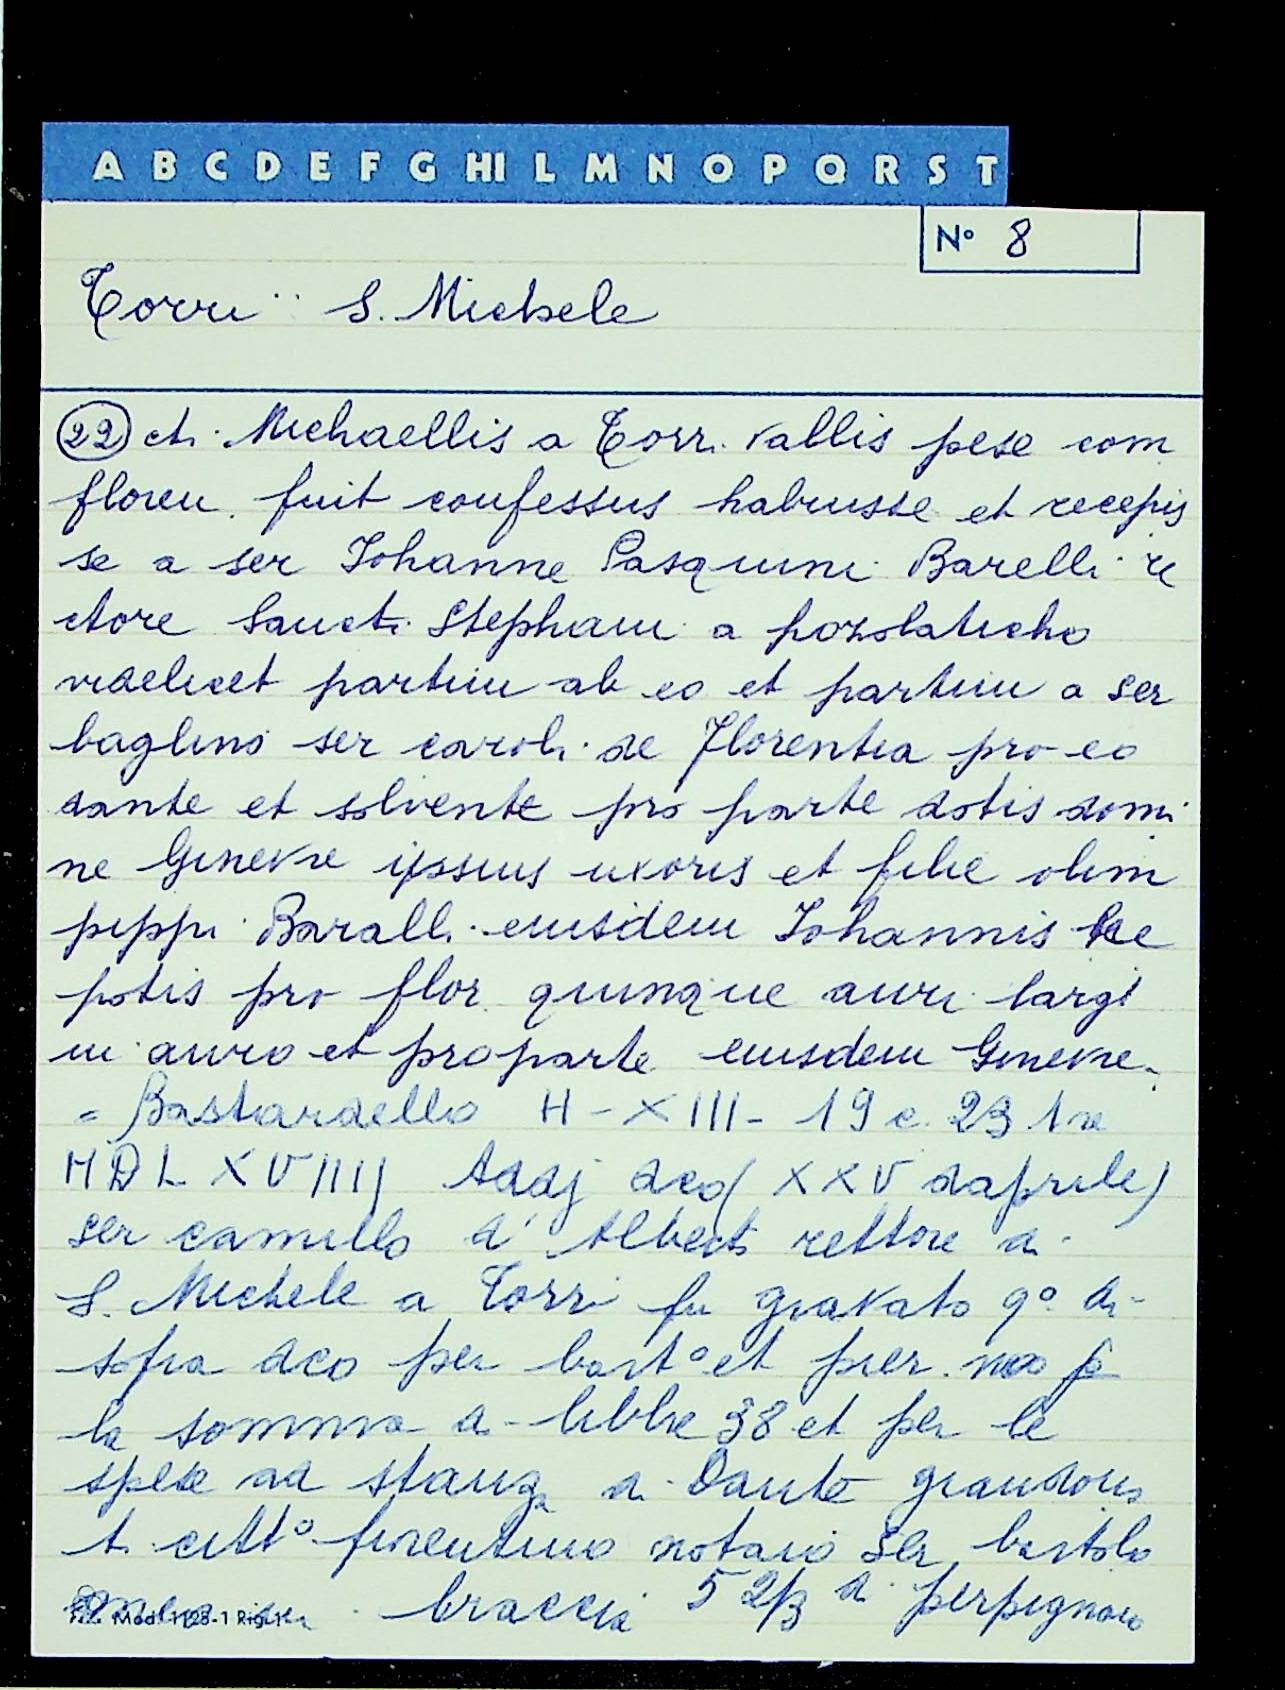 A B C D E F G HI L M N O P Q R S T
Nº 8
Torri S. Michele
(22) cti Michaellis a Torri vallis pese com
floren. fuit confessus habuisse et recepis
se a ser Johanne Pasquini Barelli re
ctore Sancti Stephani a pozolaticho
videlicet partim ab eo et partim a ser
baglino ser caroli de Florentia pro eo
dante et solvente pro parte dotis domi
ne Ginevre ipsius uxoris et filie olim
pippi Baralli eiusdem Johannis ne
potis pro flor quinque auri largi
in auro et pro parte eiusdem Ginevre.
= Bastardello H - XIII - 19 c. 23
MDLXVIIII Addj dco (XXV daprile)
ser camillo d'Alberti rettore di
S. Michele a Torri fu gravato qº di
sopra dco per bartº et pier
la somma di libbre 38 et per le
spese ad stanza di Dante
citt.º fiorentino notaio ser bartolo
braccia 5 2/3 di perpignano
Mod. 1128-1